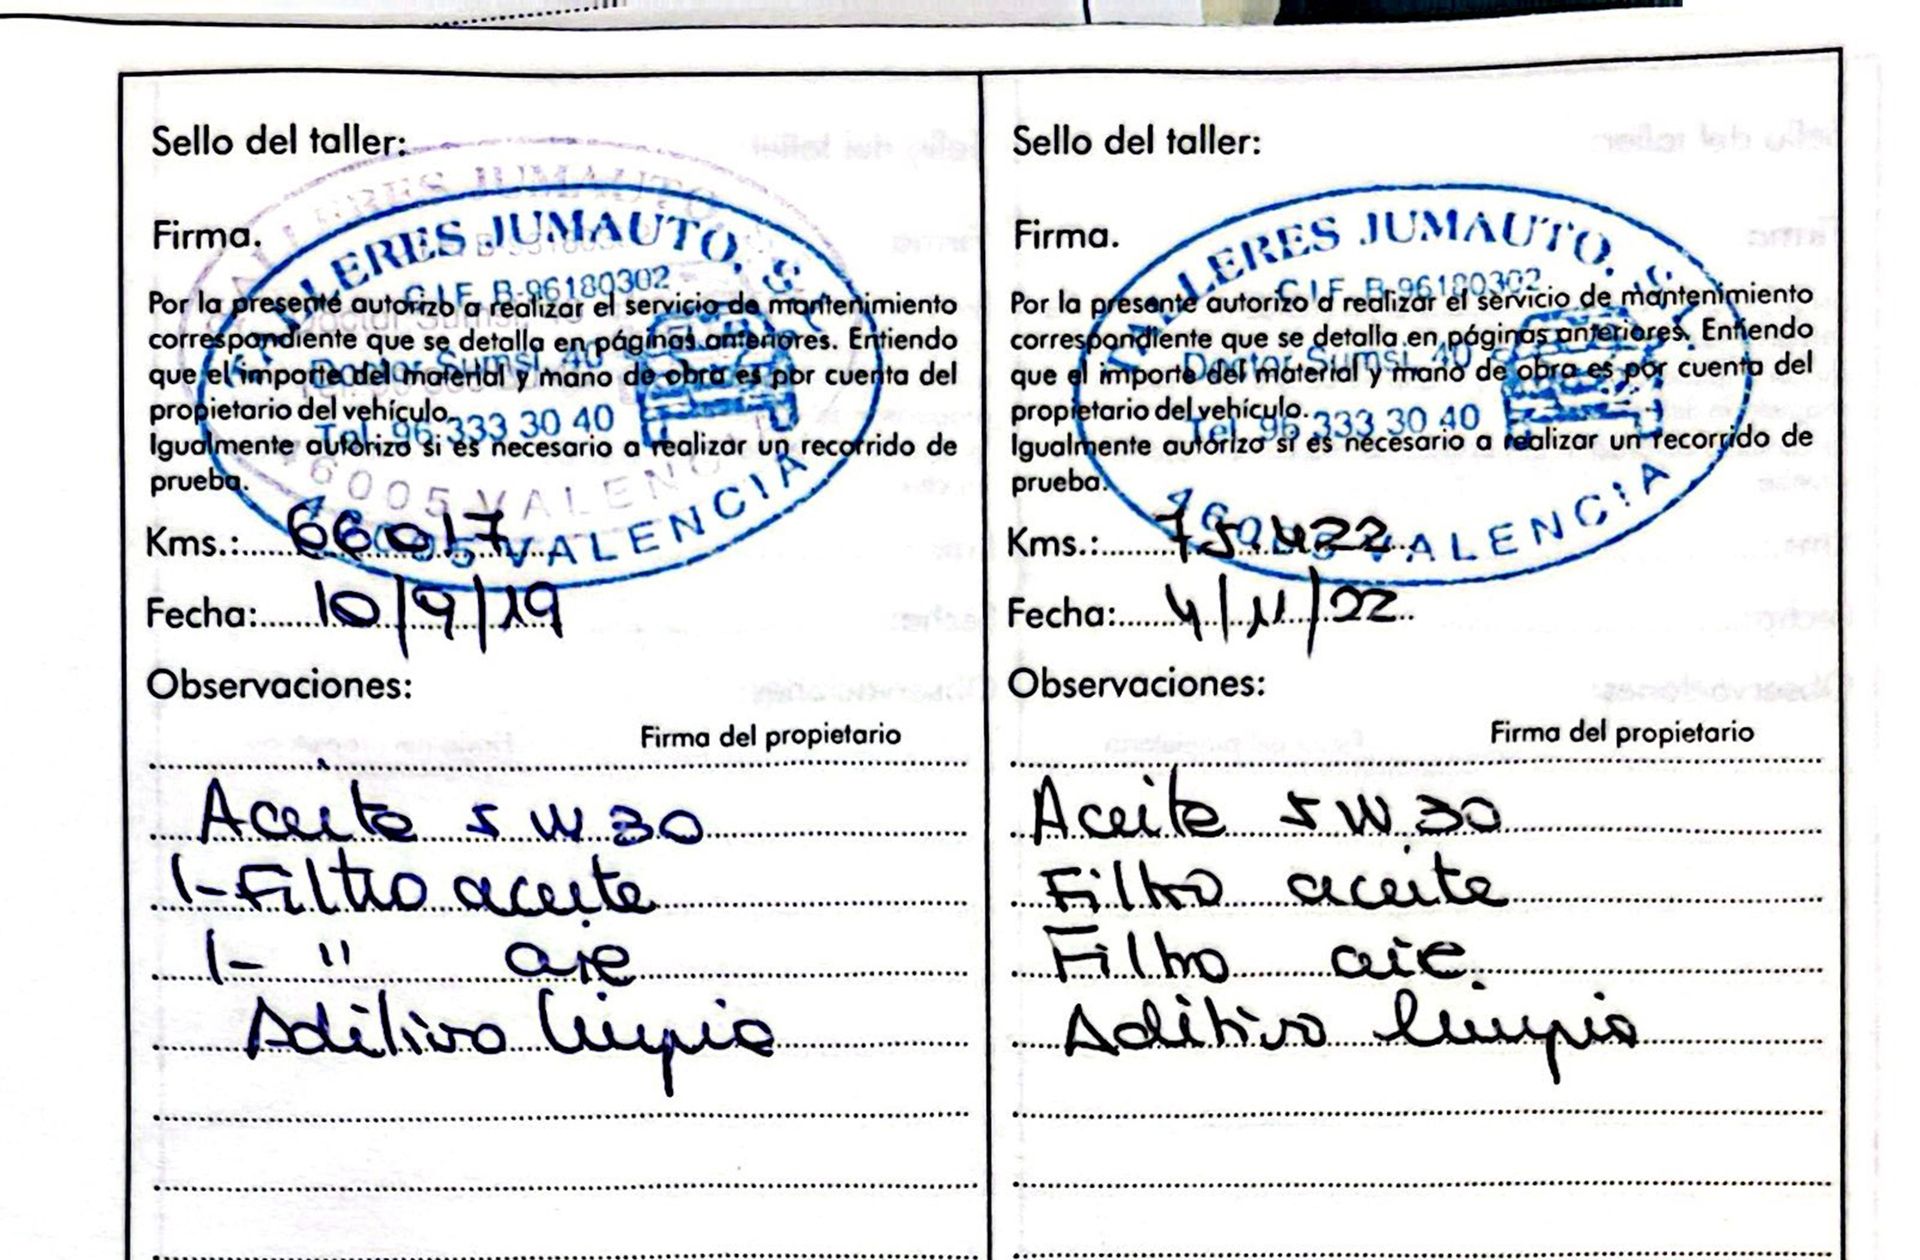 Sello del taller:
TALLERES JUMAUTO, S.L.
Firma.
C.I.F. B-96180302
Por la presente autorizo a realizar el servicio de mantenimiento
correspondiente que se detalla en páginas anteriores. Entiendo
Doctor Sumsi, 40
que el importe del material y mano de obra es por cuenta del
propietario del vehículo.
Tel. 96 333 30 40
Igualmente autorizo si es necesario a realizar un recorrido de
prueba.
46005 VALENCIA
Kms.: 66017
Fecha: 10/9/19
Observaciones:
Firma del propietario
Aceite 5W30
1- Filtro aceite
1- " aire
Aditivo limpia
Sello del taller:
TALLERES JUMAUTO, S.L.
Firma.
C.I.F. B-96180302
Por la presente autorizo a realizar el servicio de mantenimiento
correspondiente que se detalla en páginas anteriores. Entiendo
Doctor Sumsi, 40
que el importe del material y mano de obra es por cuenta del
propietario del vehículo.
Tel. 96 333 30 40
Igualmente autorizo si es necesario a realizar un recorrido de
prueba.
46005 VALENCIA
Kms.: 75.422
Fecha: 4/11/22
Observaciones:
Firma del propietario
Aceite 5W30
Filtro aceite
Filtro aire
Aditivo limpia